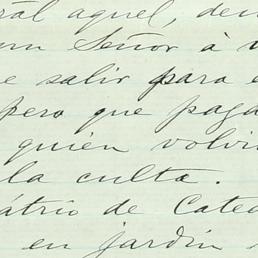 ral aquel, den
un Señor á v
e salir para e
pero que paga
quien volvi
la culta.
átrio de Cated
en jardín